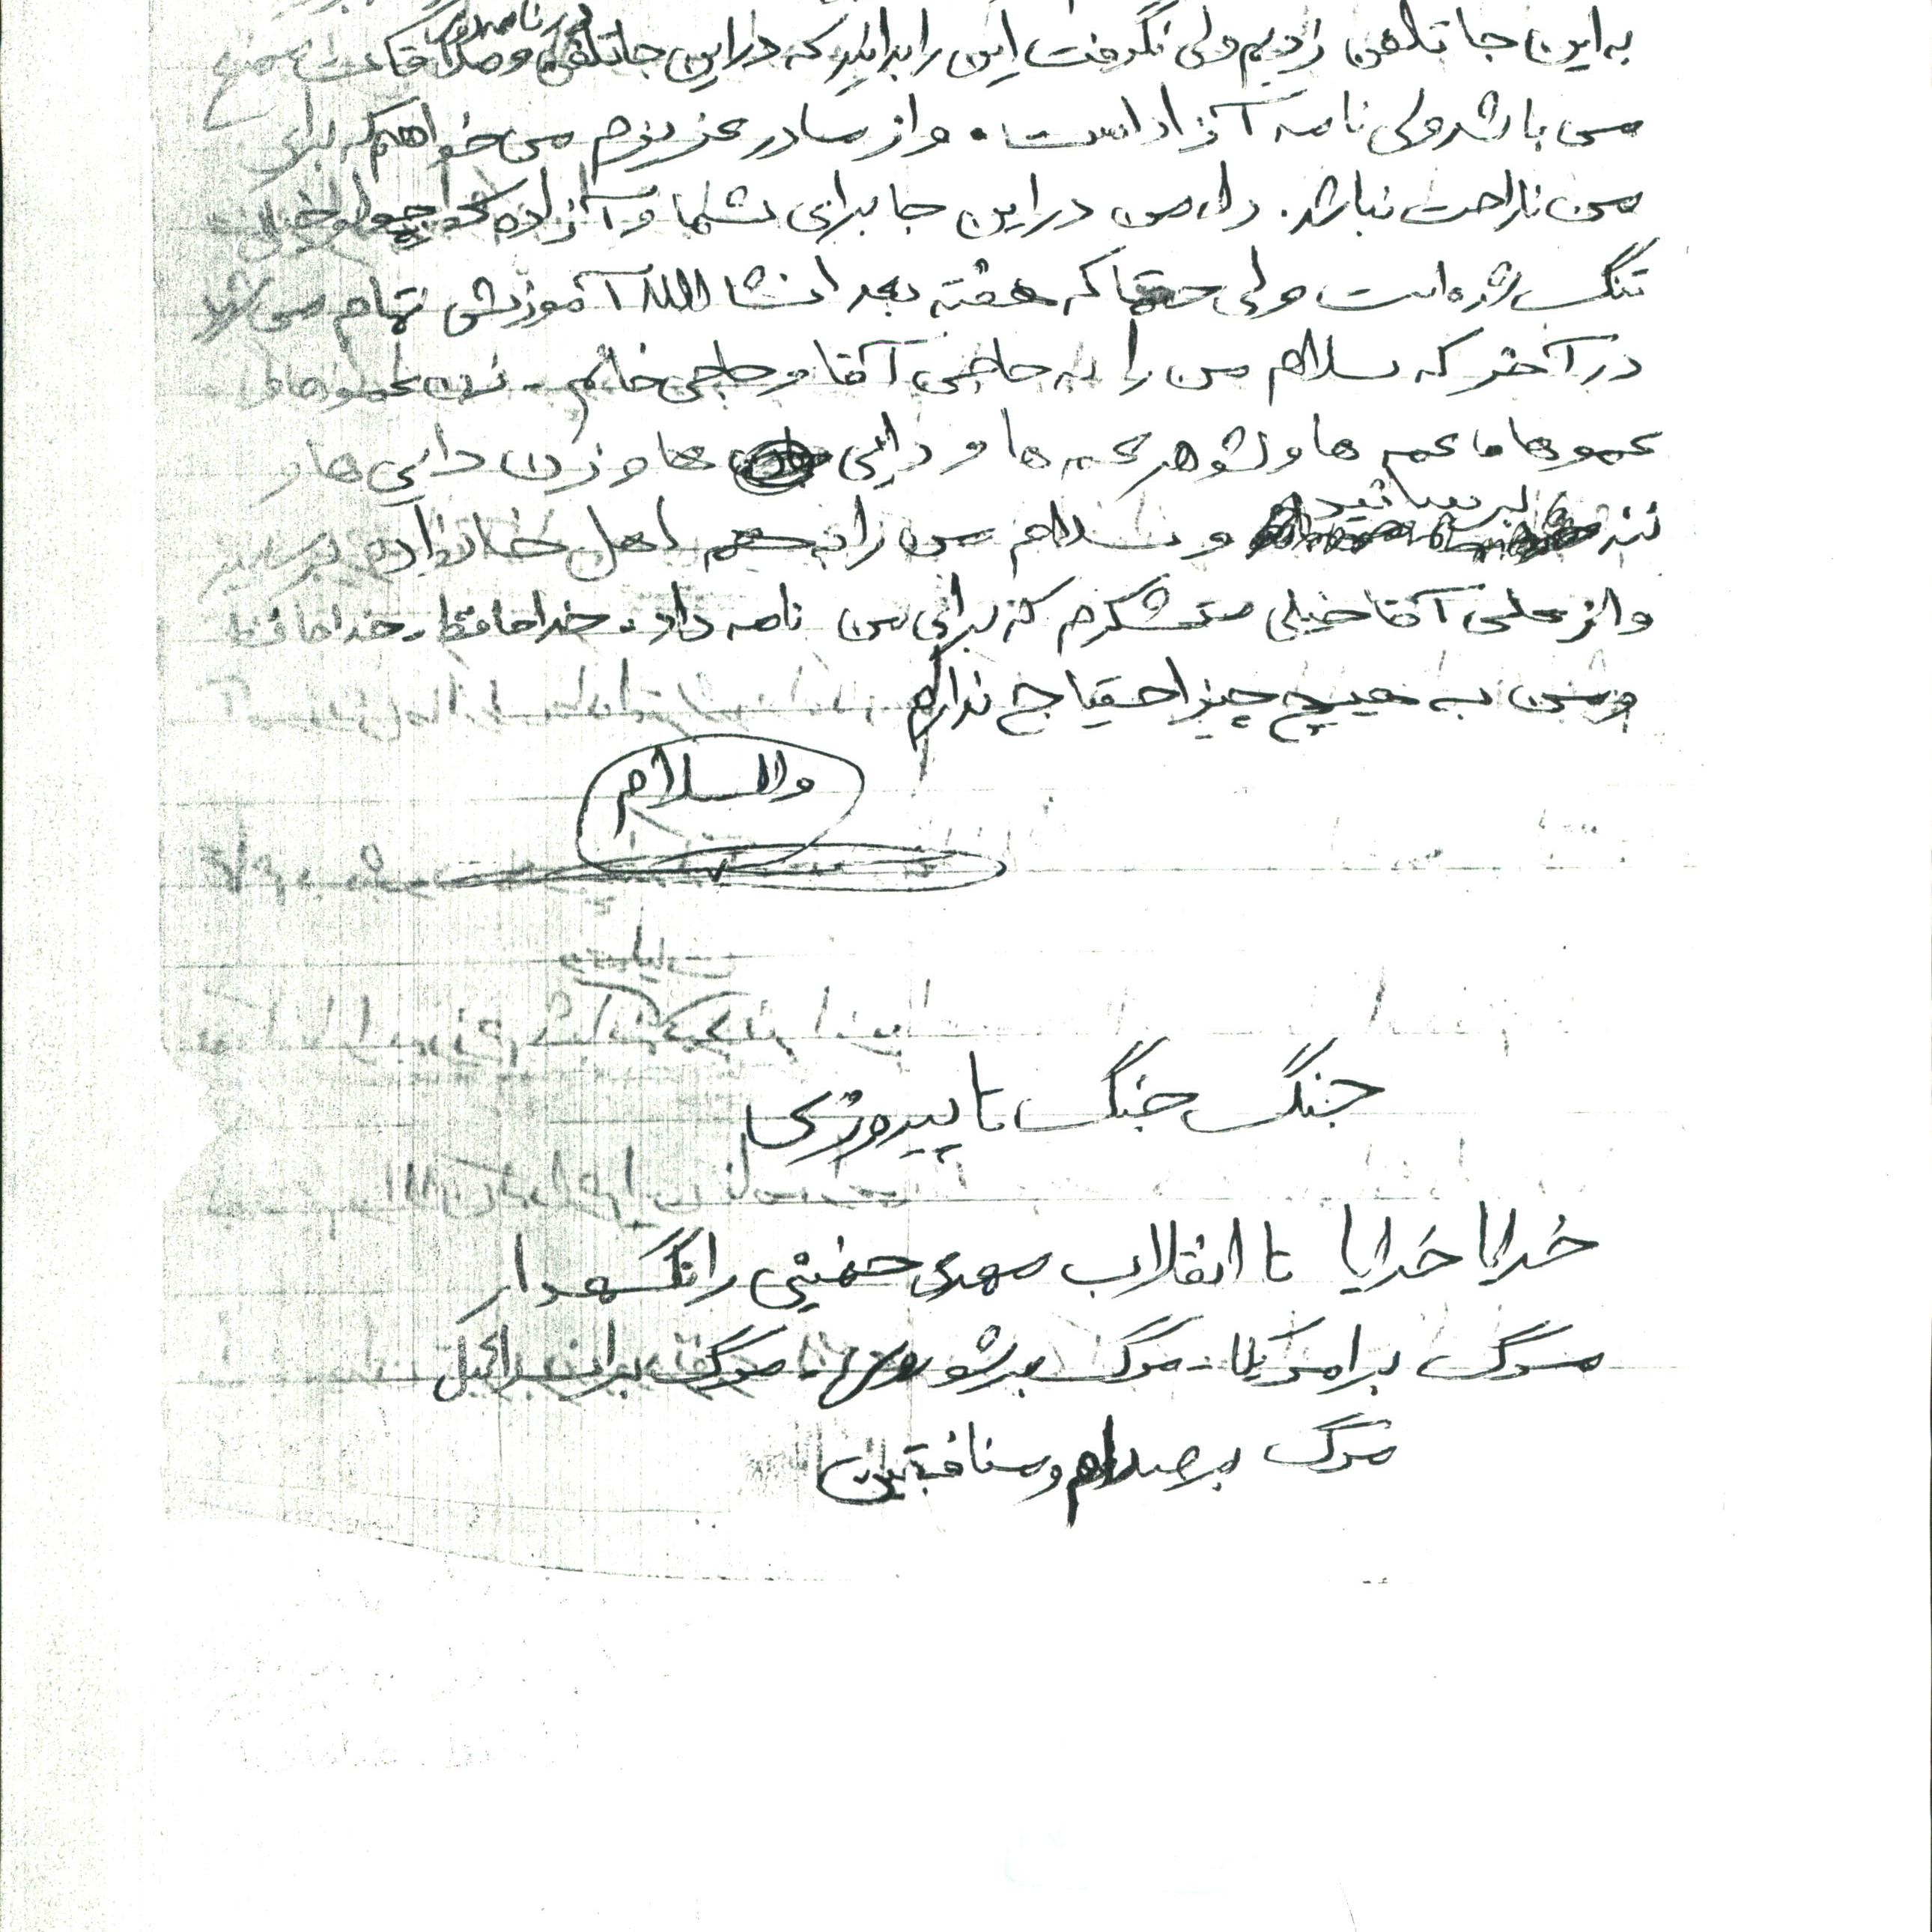 به این جا تلفن زدیم ولی نگرفت این را بدانید که در این جا تلفن و ملاقات ممنوع
می باشد ولی نامه آزاد است. و از مادر عزیزم می خواهم که برای
من ناراحت نباشد. دل من در این جا برای شما و آزاده
تنگ شده است ولی حتما که هفته بعد انشا الله آموزش تمام می شود
در آخر که سلام من را به حاجی آقا و حاجی خانم - زن عموها
عموها عمه ها و شوهر عمه ها و دایی ها و زن دایی ها و
ننه برسانید و سلام من را به همه اهل خانواده برسانید
و از علی آقا خیلی متشکرم که برای من نامه داد. خداحافظ. خداحافظ
و من به هیچ چیز احتیاج ندارم
والسلام
جنگ جنگ تا پیروزی
خدایا خدایا تا انقلاب مهدی خمینی را نگهدار
مرگ بر امریکا - مرگ بر شوروی. مرگ بر اسرائیل
مرگ بر صدام و منافقین